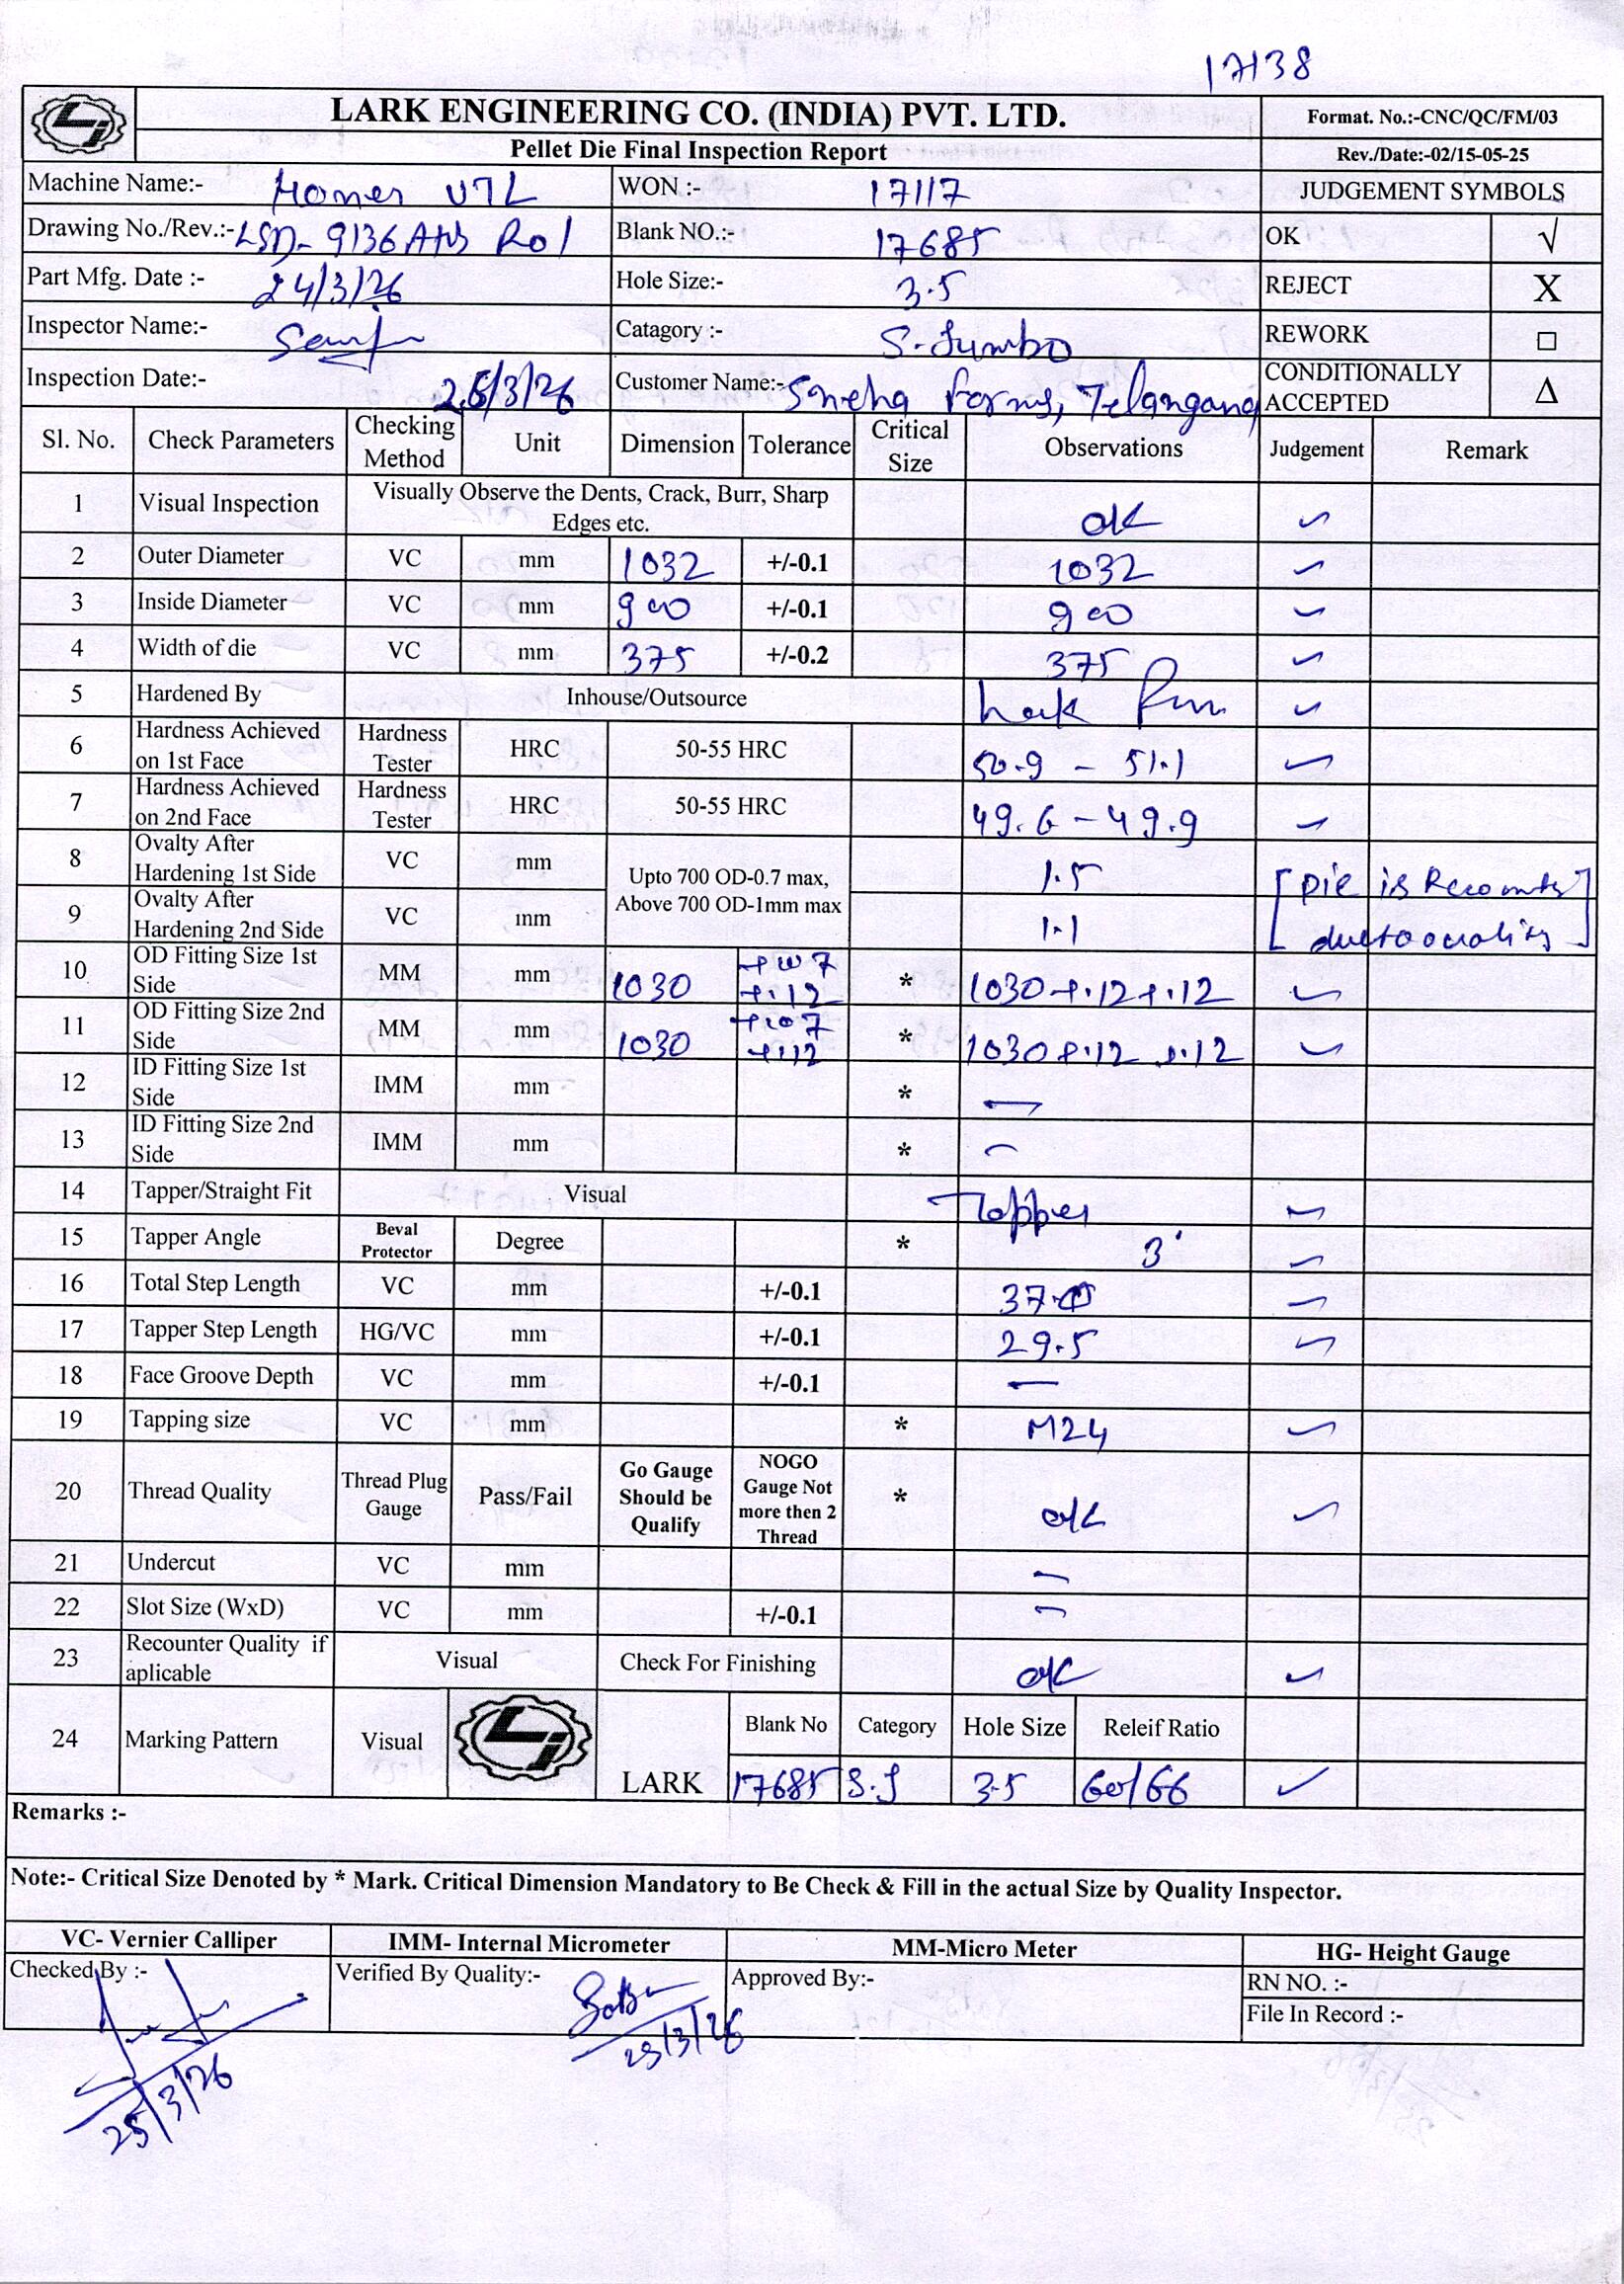 17138
LARK ENGINEERING CO. (INDIA) PVT. LTD.
Format. No.:-CNC/QC/FM/03
Pellet Die Final Inspection Report
Rev./Date:-02/15-05-25
Machine Name:- Homer VTL WON :- 17117 JUDGEMENT SYMBOLS
Drawing No./Rev.:- LSD-9136 Blank NO.:- 17685 OK √
Part Mfg. Date :- 24/3/26 Hole Size:- 3.5 REJECT X
Inspector Name:- Catagory :- S-Jumbo REWORK □
Inspection Date:- 25/3/26 Customer Name:- Sneha Farms, Telangana CONDITIONALLY ACCEPTED Δ
Sl. No. Check Parameters Checking Method Unit Dimension Tolerance Critical Size Observations Judgement Remark
1 Visual Inspection Visually Observe the Dents, Crack, Burr, Sharp Edges etc. OK ✓
2 Outer Diameter VC mm 1032 +/-0.1 1032 ✓
3 Inside Diameter VC mm 900 +/-0.1 900 ✓
4 Width of die VC mm 375 +/-0.2 375 ✓
5 Hardened By Inhouse/Outsource ✓
6 Hardness Achieved on 1st Face Hardness Tester HRC 50-55 HRC 50.9 - 51.1 ✓
7 Hardness Achieved on 2nd Face Hardness Tester HRC 50-55 HRC 49.6 - 49.9 ✓
8 Ovalty After Hardening 1st Side VC mm Upto 700 OD-0.7 max, Above 700 OD-1mm max 1.5 [Die is
9 Ovalty After Hardening 2nd Side VC mm 1.1 due to ]
10 OD Fitting Size 1st Side MM mm 1030 +.12 * 1030 +.12 +.12 ✓
11 OD Fitting Size 2nd Side MM mm 1030 +.12 * 1030 +.12 +.12 ✓
12 ID Fitting Size 1st Side IMM mm * —
13 ID Fitting Size 2nd Side IMM mm * —
14 Tapper/Straight Fit Visual Tapper ✓
15 Tapper Angle Beval Protector Degree * 3° ✓
16 Total Step Length VC mm +/-0.1 ✓
17 Tapper Step Length HG/VC mm +/-0.1 29.5 ✓
18 Face Groove Depth VC mm +/-0.1 —
19 Tapping size VC mm * M24 ✓
20 Thread Quality Thread Plug Gauge Pass/Fail Go Gauge Should be Qualify NOGO Gauge Not more then 2 Thread * OK ✓
21 Undercut VC mm —
22 Slot Size (WxD) VC mm +/-0.1 —
23 Recounter Quality if aplicable Visual Check For Finishing OK ✓
24 Marking Pattern Visual LARK Blank No Category Hole Size Releif Ratio
17685 S.J 3.5 60/66 ✓
Remarks :-
Note:- Critical Size Denoted by * Mark. Critical Dimension Mandatory to Be Check & Fill in the actual Size by Quality Inspector.
VC- Vernier Calliper IMM- Internal Micrometer MM-Micro Meter HG- Height Gauge
Checked By :- Verified By Quality:- Approved By:- RN NO. :-
File In Record :-
25/3/26
25/3/26